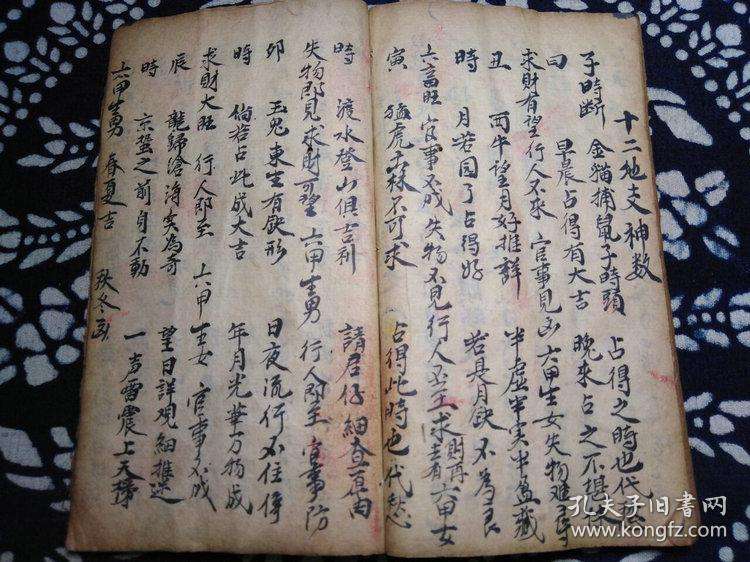 十二地支神数
子時断 金猫捕鼠子時頭 占得之時也代愁
旦晨占得有大吉 晚来占之不堪
曰
求財有望行人不來 官事見凶 六甲生女失物难尋
丑 雨牛望月好推詳 半虚半实半盈藏
時 月若园了占得好 若具月欹不為良
六畜旺 官事不成 失物不見 行人不至 求財再 六甲女
寅 猛虎山林不可求 占得此時也代愁
時 渡水登山俱吉利 請君仔細查
失物即見 求財可望 六甲生男 行人即至 官事防
卯 玉兔東生有欹形 日夜流行不住停
時 倘若占此成大吉 年月光華万物成
求財大旺 行人即至 六甲生女 官事不成
辰 龍歸滄海实為奇 望日詳观細推
時 京蛰之前身不動 一声雷震上天
六甲生男 春夏吉 秋冬凶
孔夫子旧书网
www.kongfz.com